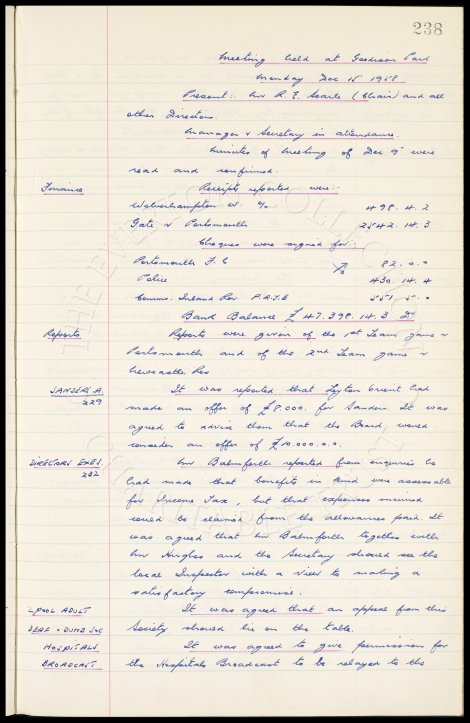 238
Meeting held at Goodison Park
Monday Dec 15 1958
Present:- Mr R. E. Searle (Chair) and all
other Directors.
Manager & Secretary in attendance.
Minutes of Meeting of Dec 9th were
read and confirmed.
Finance Receipts reported were:-
Wolverhampton W. % 498. 4. 2
Gate v Portsmouth 2542. 14. 3
Cheques were signed for:-
Portsmouth F.C 82. 0. 0
Police 430. 14. 4
Comms. Inland Rev. P.A.Y.E 551. 5. 0
Bank Balance £47,398. 14. 3
Reports Reports were given of the 1st Team game v
Portsmouth and of the 2nd Team game v
Newcastle Res
SANDERS A. It was reported that Leyton Orient had
229 made an offer of £8,000. for Sanders. It was
agreed to advise them that the Board would
consider an offer of £10,000. 0. 0.
DIRECTORS EXES. Mr Balmforth reported from enquiries he
202 had made that benefits in kind were assessable
for Income Tax, but that expenses incurred
could be claimed from the allowances paid. It
was agreed that Mr Balmforth together with
Mr Hughes and the Secretary should see the
local Inspector with a view to making a
satisfactory compromise.
L'POOL ADULT It was agreed that an appeal from this
DEAF & DUMB SOC Society should lie on the table.
HOSPITALS It was agreed to give permission for
BROADCAST the Hospitals Broadcast to be relayed to the
THE EVERTON COLLECTION